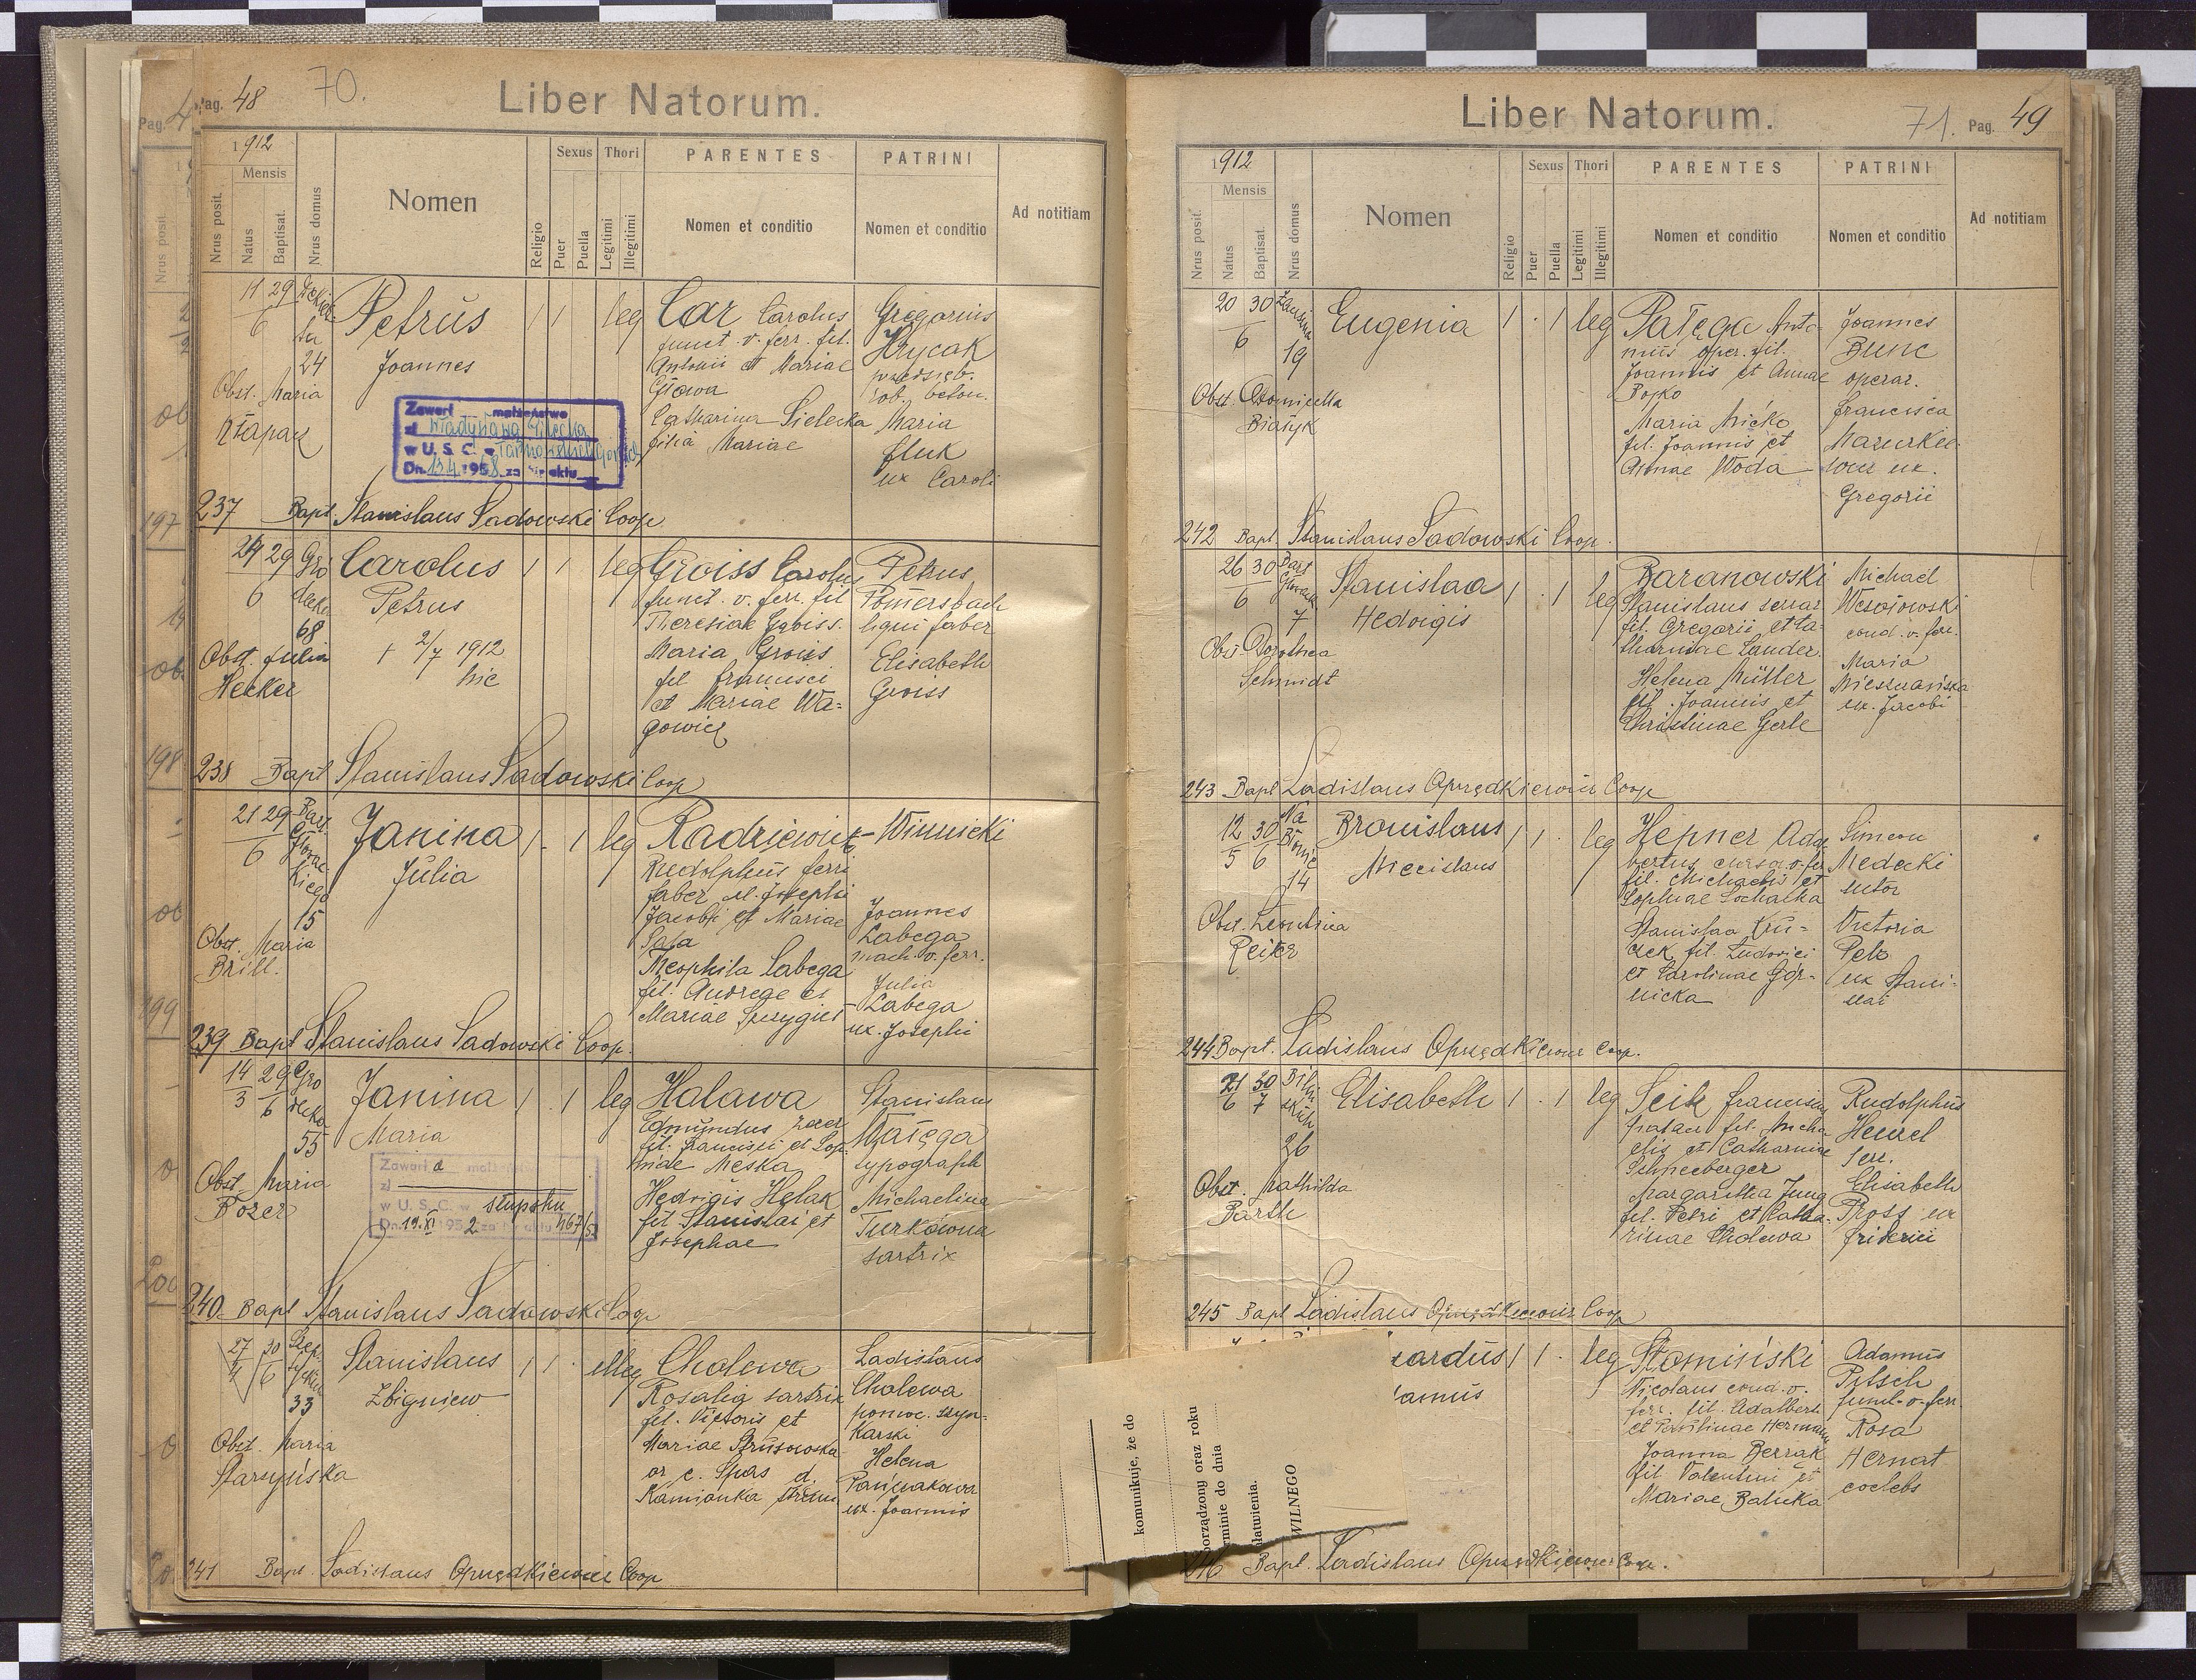 Pag. 48
70.
Liber Natorum.
1912
Mensis
Nrus posit.
Natus
Baptisat.
Nrus domus
Nomen
Religio
Sexus
Puer
Puella
Thori
Legitimi
Illegitimi
PARENTES
Nomen et conditio
PATRINI
Nomen et conditio
Ad notitiam
11 29
6
24
Petrus
Joannes
1 1
leg
Car Carolus
funct. v. ferr. fil.
Antonii et Mariae
Głowa
Catharina Sielecka
filia Mariae
Gregorius
Hrycak
przedsięb.
rob. beton.
Maria
Huk
ux Caroli
Obst. Maria
Kłapak
Zawarł małżeństwo
z
w U. S. C. w
Dn. 13.4.1958 za nr aktu
237 Bapt. Stanislaus Sadowski Coop.
24 29 Gro
6 decka
68
Carolus
Petrus
† 2/7 1912
hic
1 1
leg
Groiss Carolus
funct. v. ferr. fil
Theresiae Groiss.
Maria Groiss
fil Francisci
et Mariae Wa=
gowicz
Petrus
Pomersbach
ligni faber
Elisabeth
Groiss
Obst. Julia
Hecker
238 Bapt Stanislaus Sadowski Coop
21 29 Bart
6 Głowac
kiego
15
Janina
Julia
1 - 1
leg
Radziewicz
Rudolphus ferri
faber
Jacobi et Mariae
Sala
Theophila Labega
fil. Andreae et
Mariae
Winnicki
Joannes
Labega
mach. v. ferr.
Julia
Labega
ux. Josephi
Obst. Maria
Brill.
239 Bapt Stanislaus Sadowski Coop.
14 29 Gro
3 6 decka
55
Janina
Maria
1 . 1
leg
Halawa
Edmundus
fil. Francisci et Sop
hiae Meska
Hedvigis Helak
fil Stanislai et
Josephae
Stanislaus
Wałęga
typograph
Michaelina
Turkówna
sartrix
Obst. Maria
Bozer
Zawarła małżeństwo
z
w U. S. C. w Słupsku
Dn. 19.XI 1952 za nr aktu 467/52
240 Bapt Stanislaus Sadowski Coop
27 30
6
33
Stanislaus
Zbigniew
1 1 .
illeg
Cholewa
Rosalia sartrix
fil. Victoris et
Mariae Strusowska
or e. Spas d.
Kamionka Strum
Ladislaus
Cholewa
pomoc. szyn-
karski
Helena
Pańczakowa
ux. Joannis
Obst. Maria
Starzyńska
241 Bapt. Ladislaus Oprzędkiewicz Coop
Liber Natorum.
71. Pag. 49
1912
Mensis
Nrus posit.
Natus
Baptisat.
Nrus domus
Nomen
Religio
Sexus
Puer
Puella
Thori
Legitimi
Illegitimi
PARENTES
Nomen et conditio
PATRINI
Nomen et conditio
Ad notitiam
20 30
6
19
Eugenia
1 . 1
leg
Pałęga Anto-
nius oper. fil.
Joannis et Annae
Bojko
Maria Micko
fil. Joannis et
Annae Woda
Joannes
Bunc
operar.
Francisca
Mazurkie
wicz ux.
Gregorii
Obst. Dominicella
Białyk
242 Bapt. Stanislaus Sadowski Coop.
26 30 Bart
6 Głowack
7
Stanislaa
Hedvigis
1 . 1
leg
Baranowski
Stanislaus serrar
fil. Gregorii et Ca-
tharinae Lander
Helena Müller
fil. Joannis et
Christinae Gerle
Michael
Wesołowski
cond. v. ferr.
Maria
ux. Jacobi
Obst. Dorothea
Schmidt
243 Bapt Ladislaus Oprzędkiewicz Coop
12 30 Na
5 6 Błonie
14
Bronislaus
Miecislaus
1 1 .
leg
Hepner Adal
bertus
fil. Michaelis et
Sophiae Lochatka
Stanislaa
fil. Ludovici
et Carolinae Gór-
nicka
Simeon
Medecki
sutor
Victoria
Pelz
ux Stani-
slai
Obst. Leontina
Reiter
244 Bapt. Ladislaus Oprzędkiewicz Coop.
21 30
6 7
26
Elisabeth
1 . 1
leg
Seib Franciscus
fil. Micha
elis et Catharinae
Schneeberger
Margaretha Jung
fil. Petri et Catha-
rinae Cholewa
Rudolphus
Heuzel
Elisabeth
Pross ux
Friderici
Obst. Mathilda
Barth
245 Bapt Ladislaus Oprzędkiewicz Coop
ardus
amus
1 1 .
leg
Słomiński
Nicolaus cond. v.
ferr. fil. Adalberti
et Paulinae Hermann
Joanna Berzak
fil Valentini et
Mariae Baluka
Adamus
Pitsch
funct. v. ferr.
Rosa
Hernat
coelebs
komunikuje, że do
porządzony oraz roku
erminie do dnia
łatwienia.
WILNEGO
246 Bapt Ladislaus Oprzędkiewicz Coop.